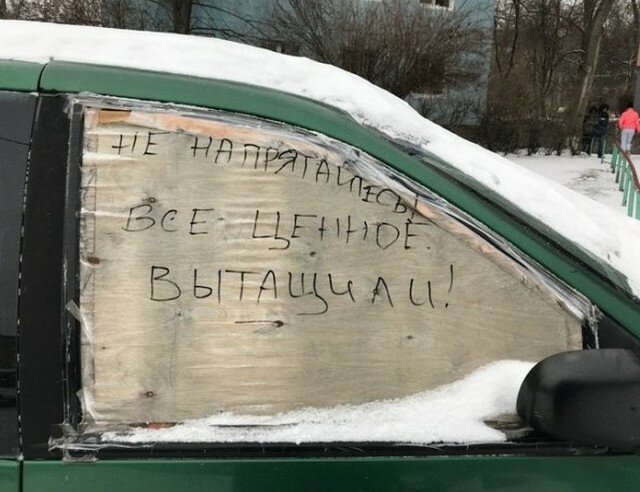 НЕ НАПРЯГАЙТЕСЬ!
ВСЕ ЦЕННОЕ
ВЫТАЩИЛИ!